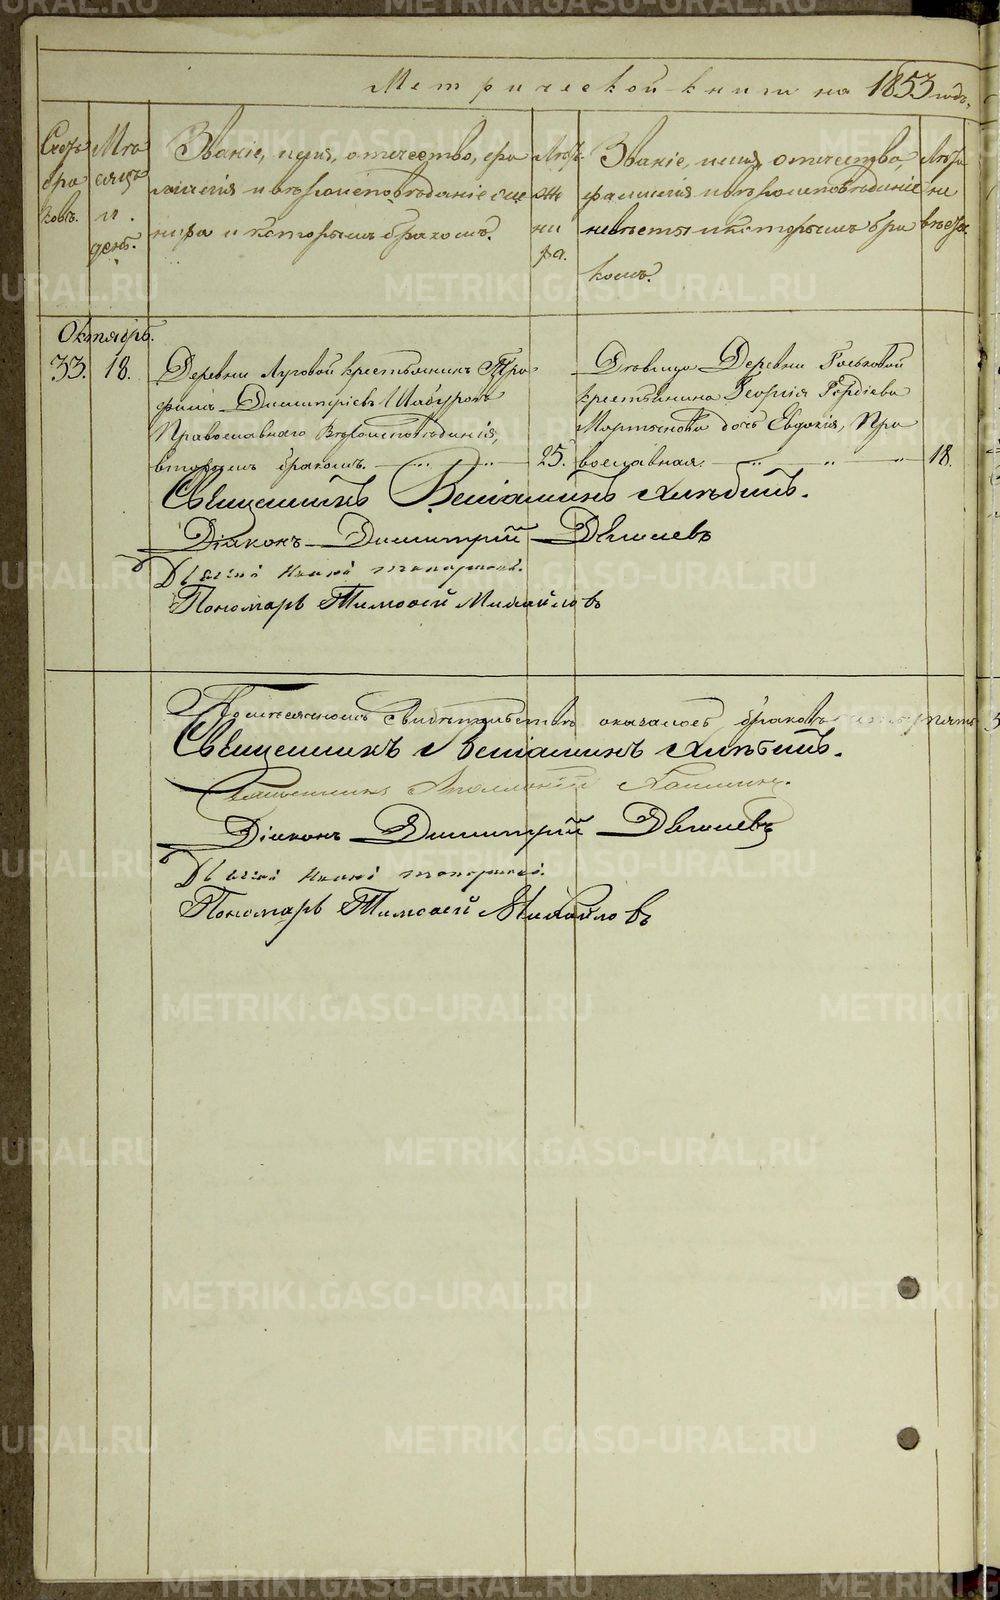 Метрической книги на 1853 годъ.
Счетъ
бра
ковъ.
Мѣ
сяцъ
и
день.
Званіе, имя, отчество, фа
милія и вѣроисповѣданіе же
ниха и которымъ бракомъ.
Лѣта
же
ни
ха.
Званіе, имя, отчество,
фамилія и вѣроисповѣданіе
невѣсты и которымъ бра
комъ.
Лѣта
не
вѣсты.
Октябрь.
33. 18.
Деревни Луговой крестьянинъ Тро
фимъ Димитріевъ Шабуровъ
Православнаго Вѣроисповѣданія,
вторымъ бракомъ.
25.
Дѣвица Деревни
крестьянина Георгія Гордіева
Мартынова дочь Евдокія, Пра
вославная.
18.
Священникъ Веніаминъ Хлѣбинъ.
Діаконъ Димитрій
Дьячекъ
Пономарь Тимоѳей Михайловъ
свидѣтельствѣ оказалось браковъ
Священникъ Веніаминъ Хлѣбинъ.
Священникъ
Діаконъ Димитрій
Дьячекъ
Пономарь Тимоѳей Михайловъ
METRIKI.GASO-URAL.RU